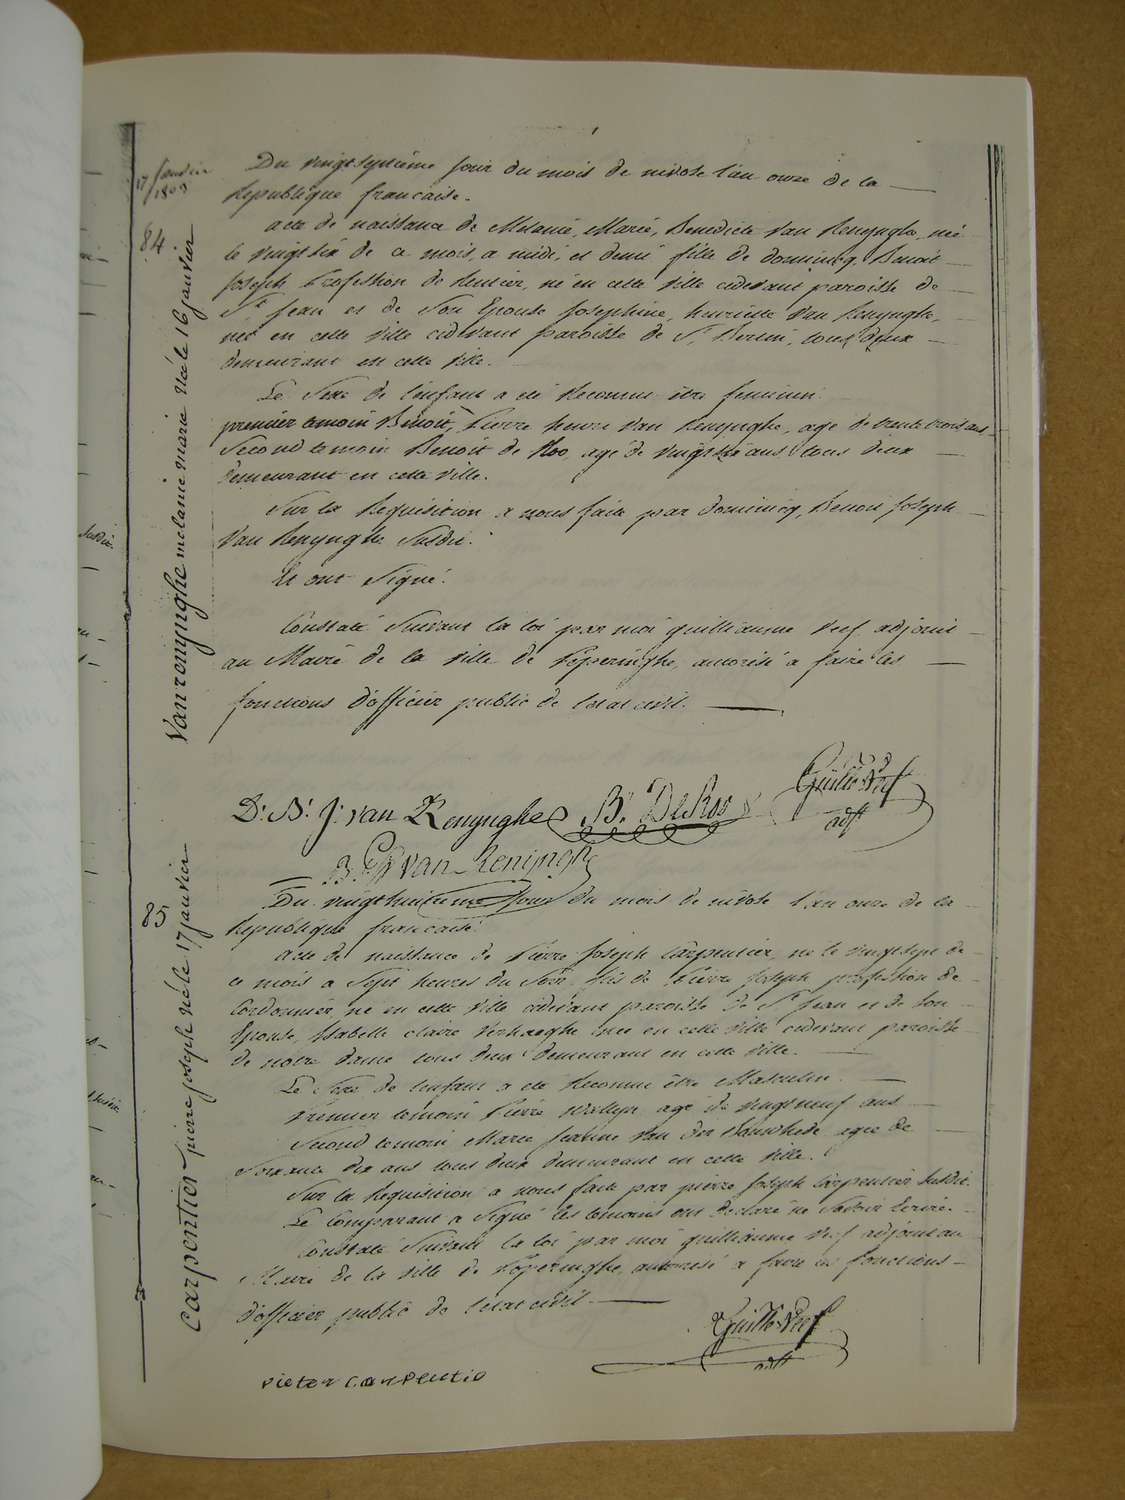 17 Janvier
1803
84
Vanrenynghe melanie marie née le 16 janvier
Du vingtseptième jour du mois de nivose l'an onze de la
Republique francaise.
acte de naissance de Melanie, Marie, Benedicte Van Renynghe, née
le vingtsix de ce mois, a midi, et demi fille de dominicq, Benoit
Joseph Profession de Rentier, né en cette ville cidevant paroisse de
St Jean et de Son Epouse Josephine, henriette Van Renynghe,
née en cette ville cidevant paroisse de St Bertin, tous deux
demeurant en cette ville.
Le Sexe de l'enfant a été Reconnu être feminin.
premier temoin Benoit, Pierre henri Van Renynghe, age de trente trois ans
Second temoin Benoit de Roo, age de vingt ans, tous deux
demeurant en cette ville.
Sur la Requisition a nous faite par dominicq, Benoit Joseph
Van Renynghe Susdit.
Et ont Signé.
Constaté Suivant la loi par moi guilliaume Verf adjoint
au Maire de la ville de Poperinghe, autorisé a faire les
fonctions d'officier public de letat civil.
D. B. J. van Renynghe B. DeRoo Guille Verf
adjt
B. P. H. van Reningh
85
Carpentier pierre joseph né le 17 janvier
Du vingthuitieme Jour du mois de nivose l'an onze de la
Republique francaise.
Acte de naissance de Pierre Joseph Carpentier, né le vingtsept de
ce mois a Sept heures du Soir, fils de Pierre Joseph profession de
Cordonnier, né en cette ville cidevant paroisse de St Jean et de Son
Epouse, Isabelle claire Verhaeghe née en cette ville cidevant paroisse
de notre dame tous deux demeurant en cette ville.
Le Sexe de l'enfant a été Reconnu être Masculin.
Premier temoin Pierre Wallyn agé de vingtneuf ans
Second temoin Marie Jeanne Van der agee de
Soixante dix ans tous deux demeurant en cette ville.
Sur la Requisition a nous faite par pierre Joseph Carpentier Susdit.
Le Comparant a Signé les temoins ont Declaré ne Savoir Ecrire.
Constaté Suivant la loi par moi guilliaume Verf adjoint au
Maire de la ville de Poperinghe, autorisé a faire les fonctions
d'officier public de letat civil.
Guille Verf
adjt
pieter carpentio